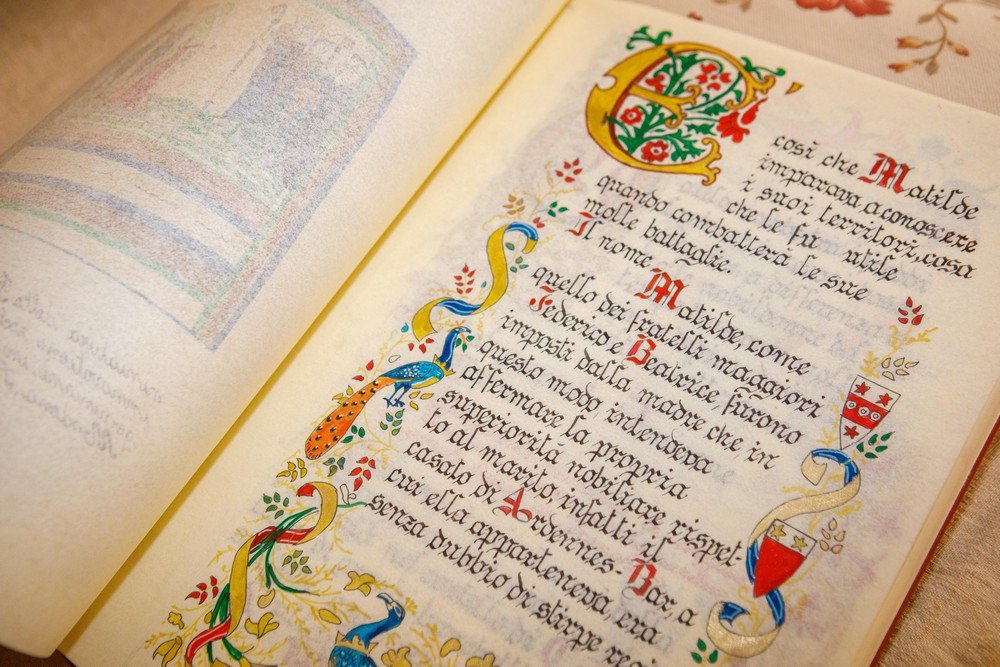 E'
così che Matilde
imparava a conoscere
i suoi territori, cosa
che le fu utile
quando combatterà le sue
molte battaglie.
Il nome Matilde, come
quello dei fratelli maggiori
Federico e Beatrice, furono
imposti dalla madre che in
questo modo intendeva
affermare la propria
superiorità nobiliare rispet-
to al marito, infatti il
casato di Ardennes-Bar, a
cui ella apparteneva, era
senza dubbio di stirpe regi